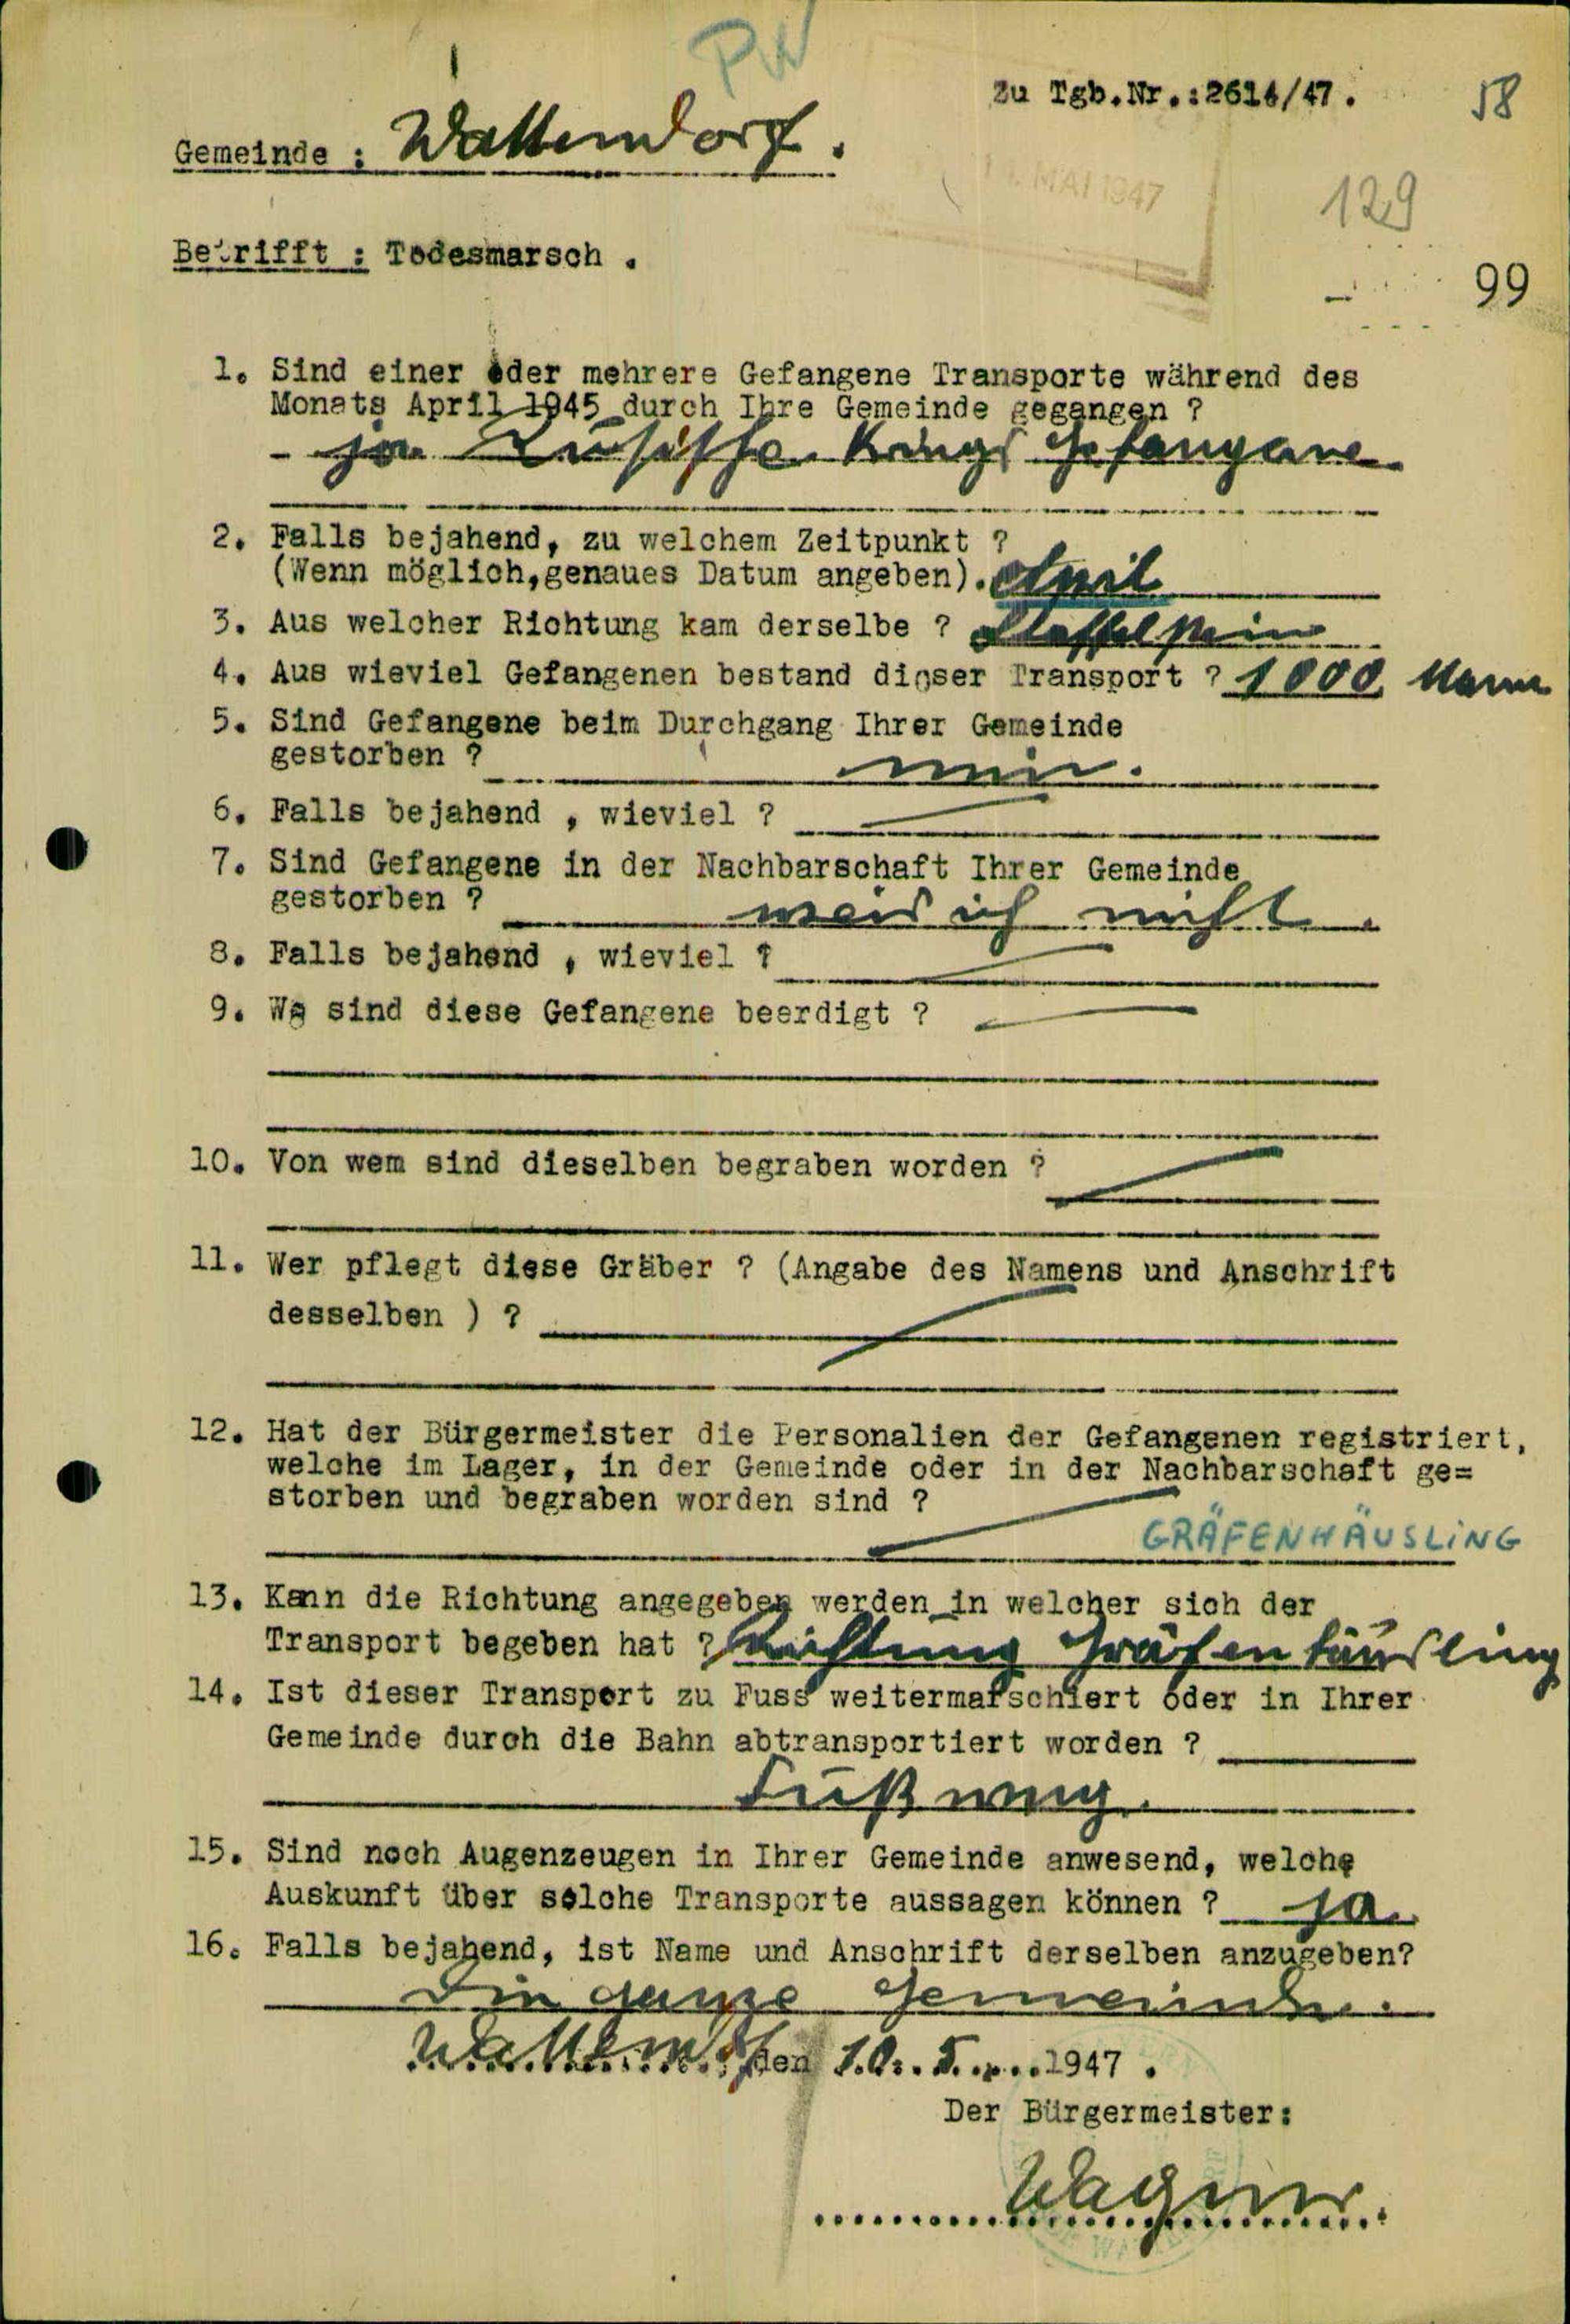 PW
Zu Tgb.Nr.:2614/47.
58
Gemeinde : Wattendorf.
MAI 1947
129
Betrifft : Todesmarsch .
99
1. Sind einer oder mehrere Gefangene Transporte während des
Monats April 1945 durch Ihre Gemeinde gegangen ?
- ja Rusische Kriegs gefangene
2. Falls bejahend, zu welchem Zeitpunkt ?
(Wenn möglich,genaues Datum angeben). April
3. Aus welcher Richtung kam derselbe ? Staffelstein
4. Aus wieviel Gefangenen bestand dieser Transport ? 1000 Mann
5. Sind Gefangene beim Durchgang Ihrer Gemeinde
gestorben ? nein.
6. Falls bejahend , wieviel ?
7. Sind Gefangene in der Nachbarschaft Ihrer Gemeinde
gestorben ? weis ich nicht.
8. Falls bejahend , wieviel ?
9. Wo sind diese Gefangene beerdigt ?
10. Von wem sind dieselben begraben worden ?
11. Wer pflegt diese Gräber ? (Angabe des Namens und Anschrift
desselben ) ?
12. Hat der Bürgermeister die Personalien der Gefangenen registriert,
welche im Lager, in der Gemeinde oder in der Nachbarschaft ge=
storben und begraben worden sind ?
GRÄFENHÄUSLING
13. Kann die Richtung angegeben werden in welcher sich der
Transport begeben hat ? Richtung Gräfenhäusling
14. Ist dieser Transport zu Fuss weitermarschiert oder in Ihrer
Gemeinde durch die Bahn abtransportiert worden ?
Fußweg.
15. Sind noch Augenzeugen in Ihrer Gemeinde anwesend, welche
Auskunft über solche Transporte aussagen können ? ja.
16. Falls bejahend, ist Name und Anschrift derselben anzugeben?
Die ganze Gemeinde.
Wattendorf den 10. 5. 1947 .
Der Bürgermeister:
Wagner.